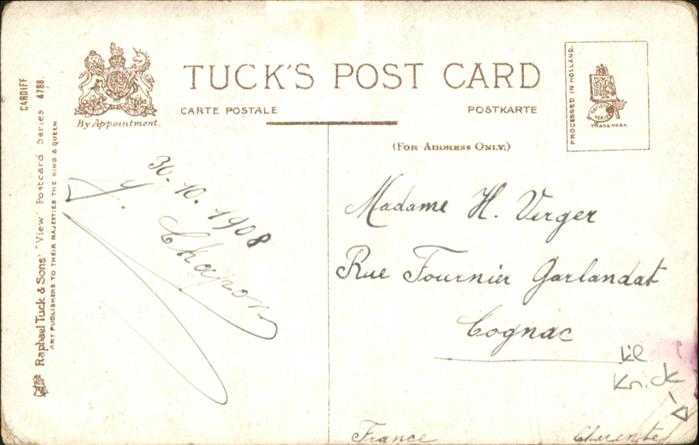 CARDIFF 4788.
Raphael Tuck & Sons' "View" Postcard Series
ART PUBLISHERS TO THEIR MAJESTIES THE KING & QUEEN
By Appointment.
TUCK'S POST CARD
CARTE POSTALE
POSTKARTE
(FOR ADDRESS ONLY.)
PROCESSED IN HOLLAND.
TRADE MARK
30.10.1908
Y. Chapon
Madame H. Verger
Rue Fournier Garlandat
Cognac
Knick
France
Charente